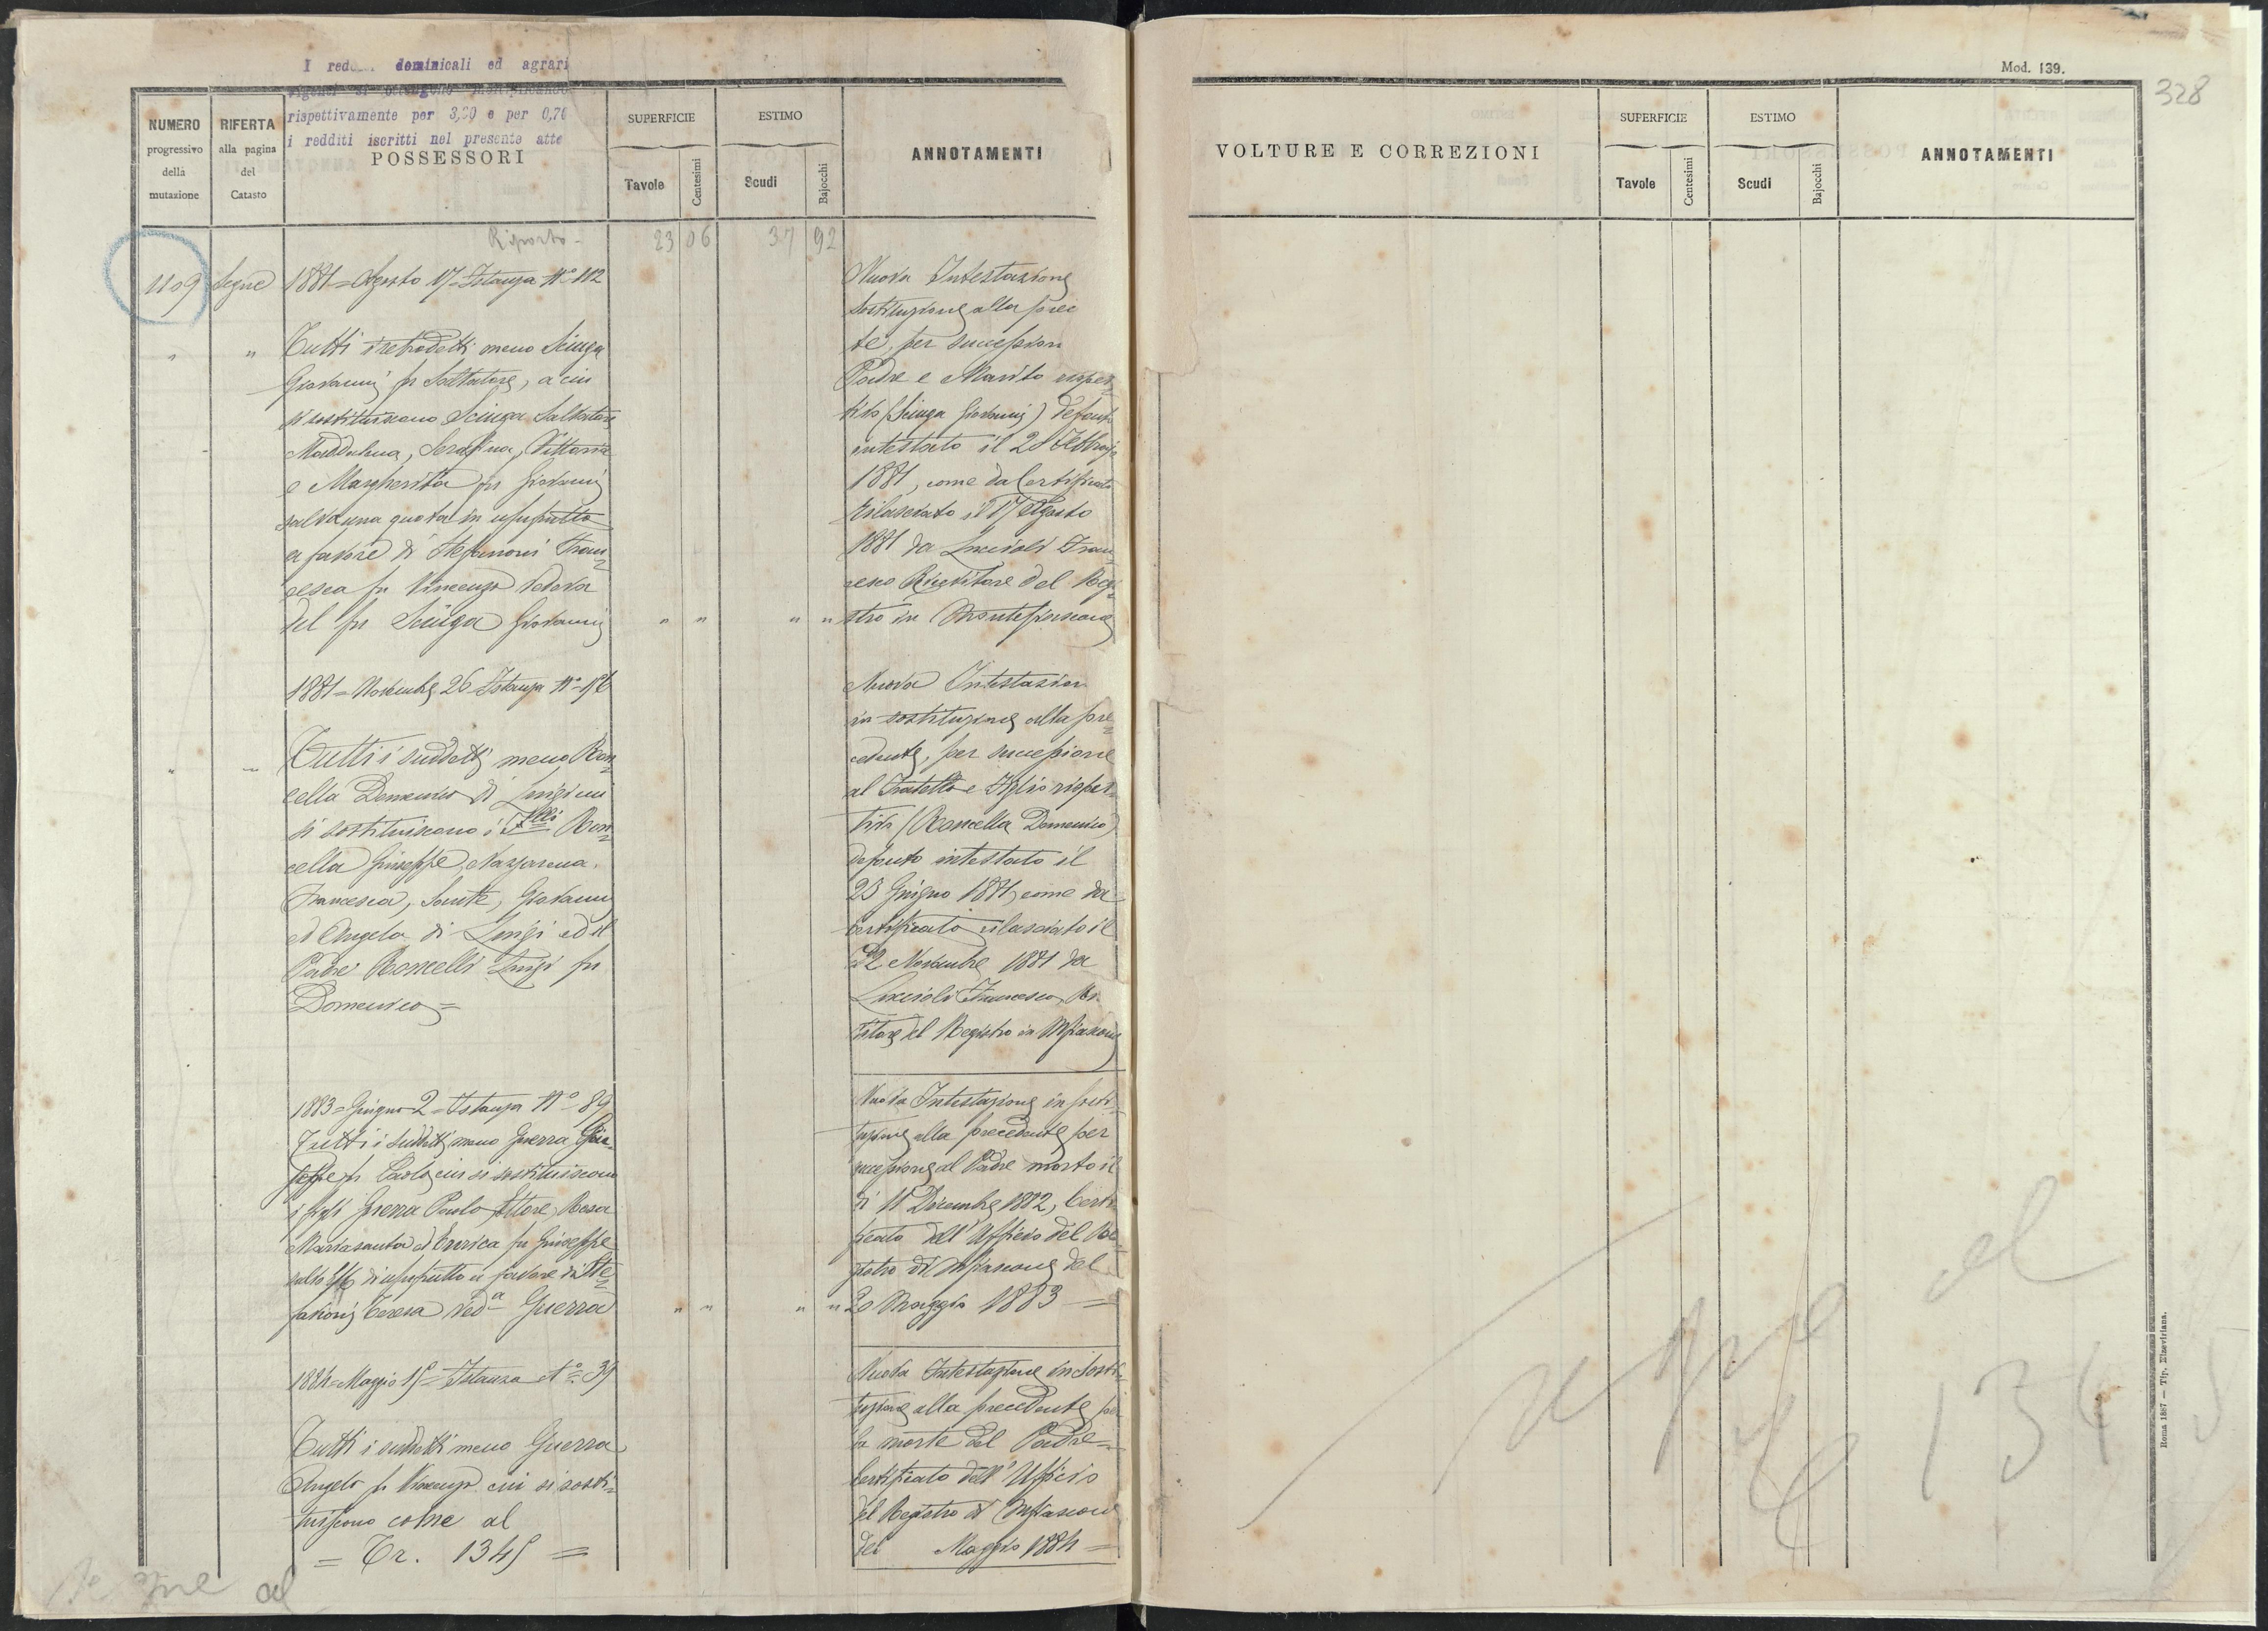 I dominicali ed agrari
rispettivamente per 3,20 e per 0,70
i redditi iscritti nel presente atte
NUMERO
progressivo
della
mutazione
RIFERTA
alla pagina
del
Catasto
POSSESSORI
SUPERFICIE
Tavole
Centesimi
ESTIMO
Scudi
Bajocchi
ANNOTAMENTI
Riporto
23 06 37 92
1109 Segue 1881 = Agosto 17 = Istanza N° 112
" " Tutti i retrodetti meno Sciuga
Giovanni fu Salvatore, a cui
si sostituiscono Sciuga Salvatore
Maddalena, Serafina, Vittoria
e Margherita fu Giovanni
salva una quota in usufrutto
a favore di Stefanoni Fran=
cesca fu Vincenzo vedova
del fu Sciuga Giovanni " " " "
Nuova Intestazione
Sostituzione alla prec
te, per succession
Padre e Marito rispet=
tivo (Sciuga Giovanni) defunto
intestato il 28 Febbraio
1881, come da Certificato
rilasciato il 17 Agosto
1881 da Luccioli Fran=
cesco Ricevitore del Regi=
stro in Montefiascone
1881 = Novembre 26 Istanza N°
" " Tutti i suddetti meno Ron=
cella Domenico di Luigi cui
si sostituiscono i F.lli Ron=
cella Giuseppe, Nazzarena,
Francesca, Sante, Giovanni
ed Angelo di Luigi ed il
Padre Roncelli Luigi fu
Domenico =
Nuova Intestazion
in sostituzione alla pre=
cedente, per successione
al Fratello e Figlio rispet=
tivo (Roncella Domenico)
defunto intestato il
23 Giugno 1881, come da
certificato rilasciato il
22 Novembre 1881 da
Luccioli Francesco Ri
vitore del Registro in Mfiascone
1883 = Giugno 2 = Istanza N° 89
Tutti i suddetti meno Guerra Giu=
seppe fu Paolo, cui si sostituiscono
i figli Guerra Paolo, Ettore, Rosa
Mariasanta ed Enrica fu Giuseppe
salvo di usufrutto a favore di Ste=
fanoni Teresa ved.a Guerra " " " "
Nuova Intestazione in sosti=
tuzione alla precedente per
successione al Padre morto il
dì 11 Dicembre 1882, Certi
ficato dell'Ufficio del Re=
gistro di Mfiascone del
20 Maggio 1883 =
1884 = Maggio 15 = Istanza N° 39
Tutti i suddetti meno Guerra
Angelo fu Vincenzo cui si sosti=
tuiscono come al
= Tr. 1345 =
Nuova Intestazione in sosti=
tuzione alla precedente per
la morte del Padre =
Certificato dell'Ufficio
del Registro di Mfiascone
del Maggio 1884 =
Segue al
Mod. 139.
328
VOLTURE E CORREZIONI
SUPERFICIE
Tavole
Centesimi
ESTIMO
Scudi
Bajocchi
ANNOTAMENTI
Segue al
1345
Roma 1887 — Tip. Elzeviriana.